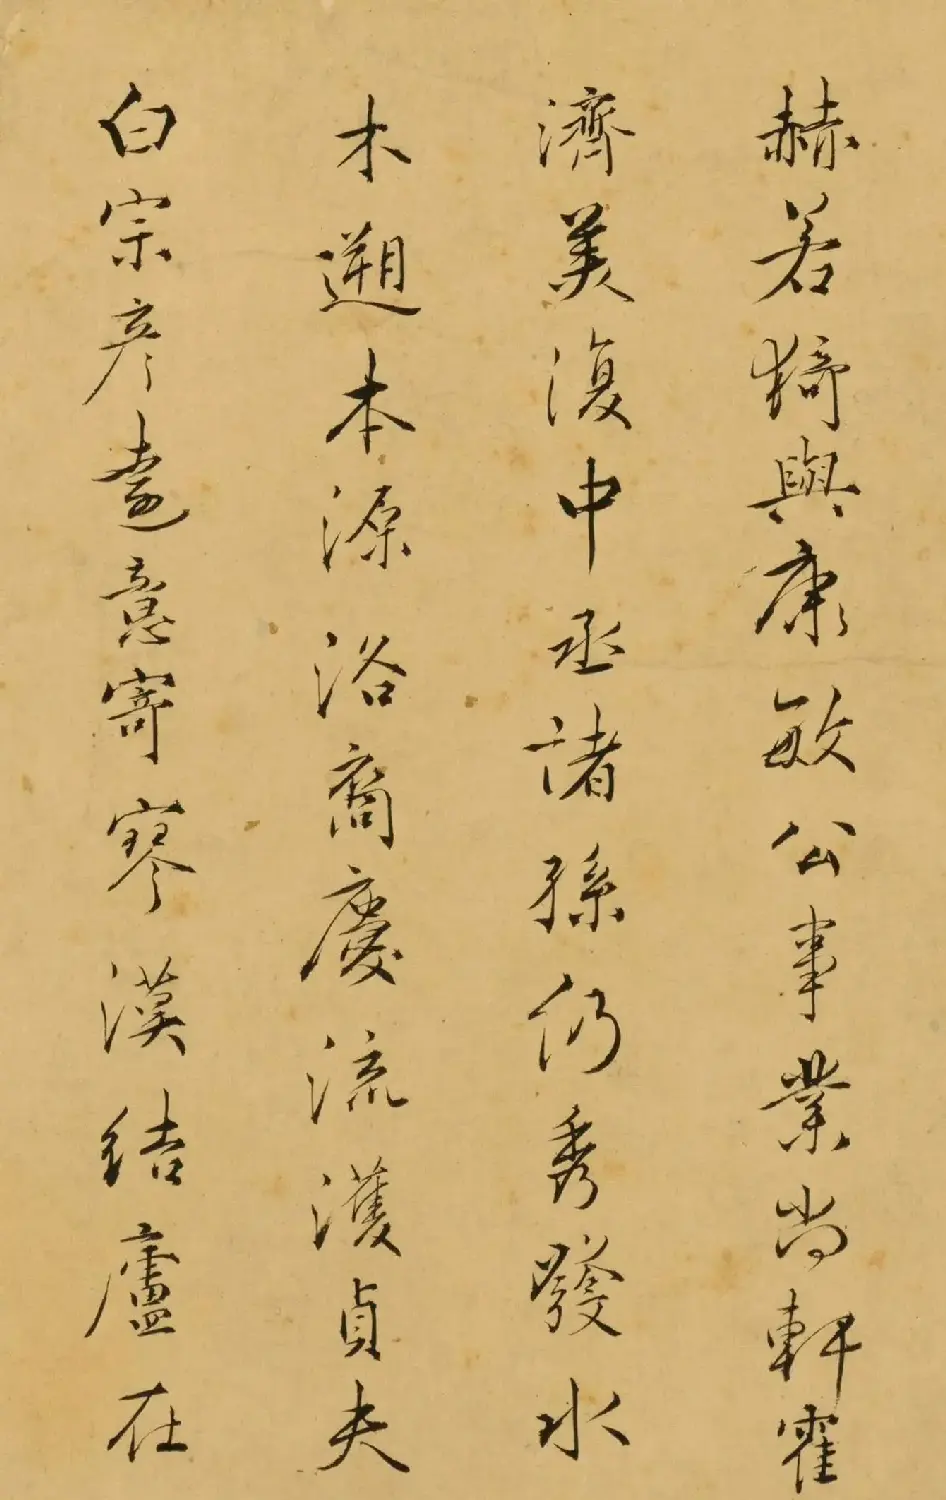 赫若猗與康敏公事業尚軒霍
濟美復中丞諸孫仍秀發水
木遡本源洛裔慶流濩貞夫
白宗彥遠意寄寥漠結廬在